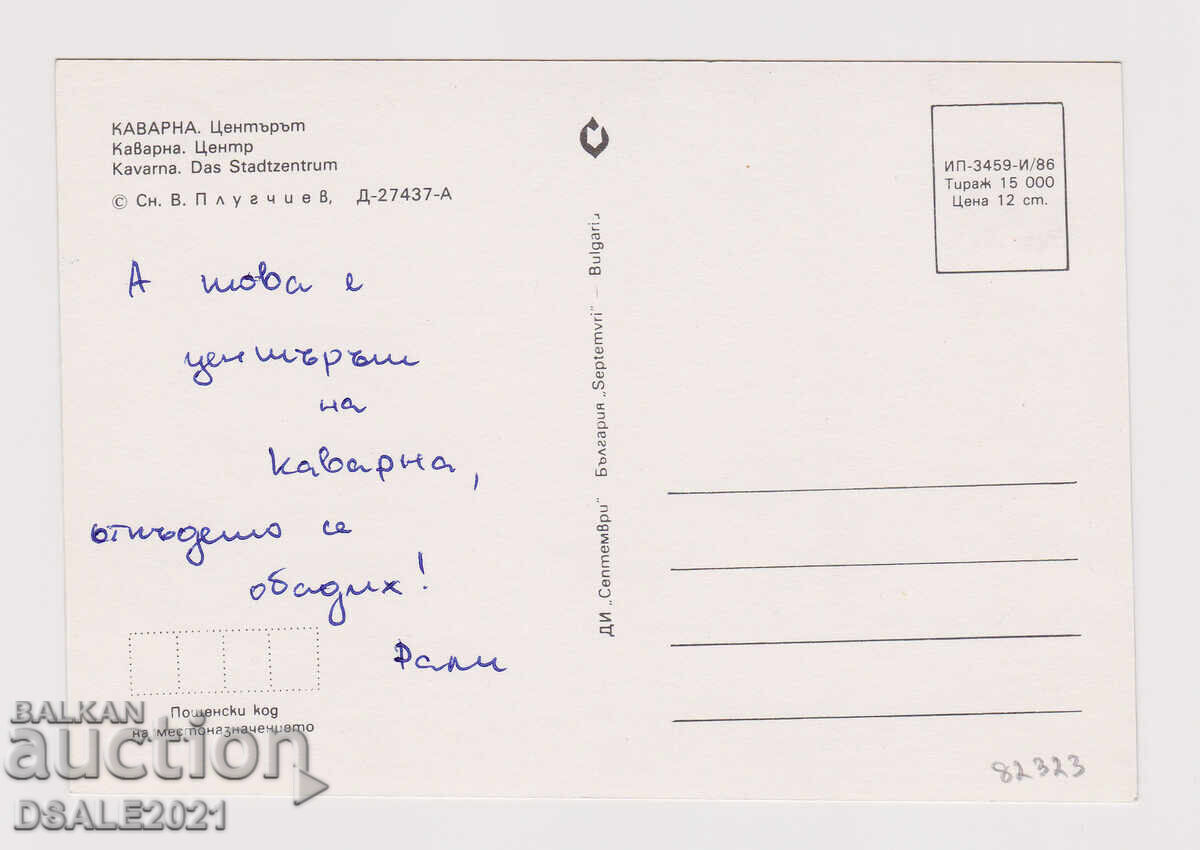 КАВАРНА. Центърът
Каварна. Центр
Kavarna. Das Stadtzentrum
© Сн. В. Плугчиев, Д-27437-А
А това е
центърът
на
Каварна,
откъдето се
обадих!
Рали
Пощенски код
на местоназначението
ДИ „Септември" България „Septemvri" – Bulgaria
ИП-3459-И/86
Тираж 15 000
Цена 12 ст.
82323
BALKAN
auction
DSALE2021